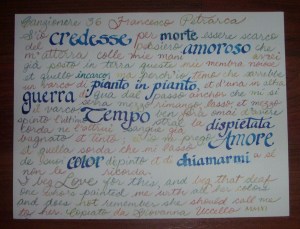 Canzoniere 36 Francesco Petrarca
S'io credesse per morte essere scarco
del pensiero amoroso che
m'atterra colle mie mani avrei
già posto in terra queste mie membra noiose
et quello incarco, ma perch'io temo che sarrebbe
un varco di pianto in pianto, et d'una in altra
guerra di qua dal passo anchor che mi
si serra mezzo rimango lasso, et mezzo
Tempo ben fora omai d'avere
spinto l'ultimo la dispietata
corda ne l'altrui sangue già
bagnato et tinto prego Amore
et quella sorda che mi lassò
de suoi color depinto, et di chiamarmi a sé
non le ricorda.
I beg Love for this, and beg that deaf
one who painted me with all her colors
and does not remember she should call me
to her. Giovanna